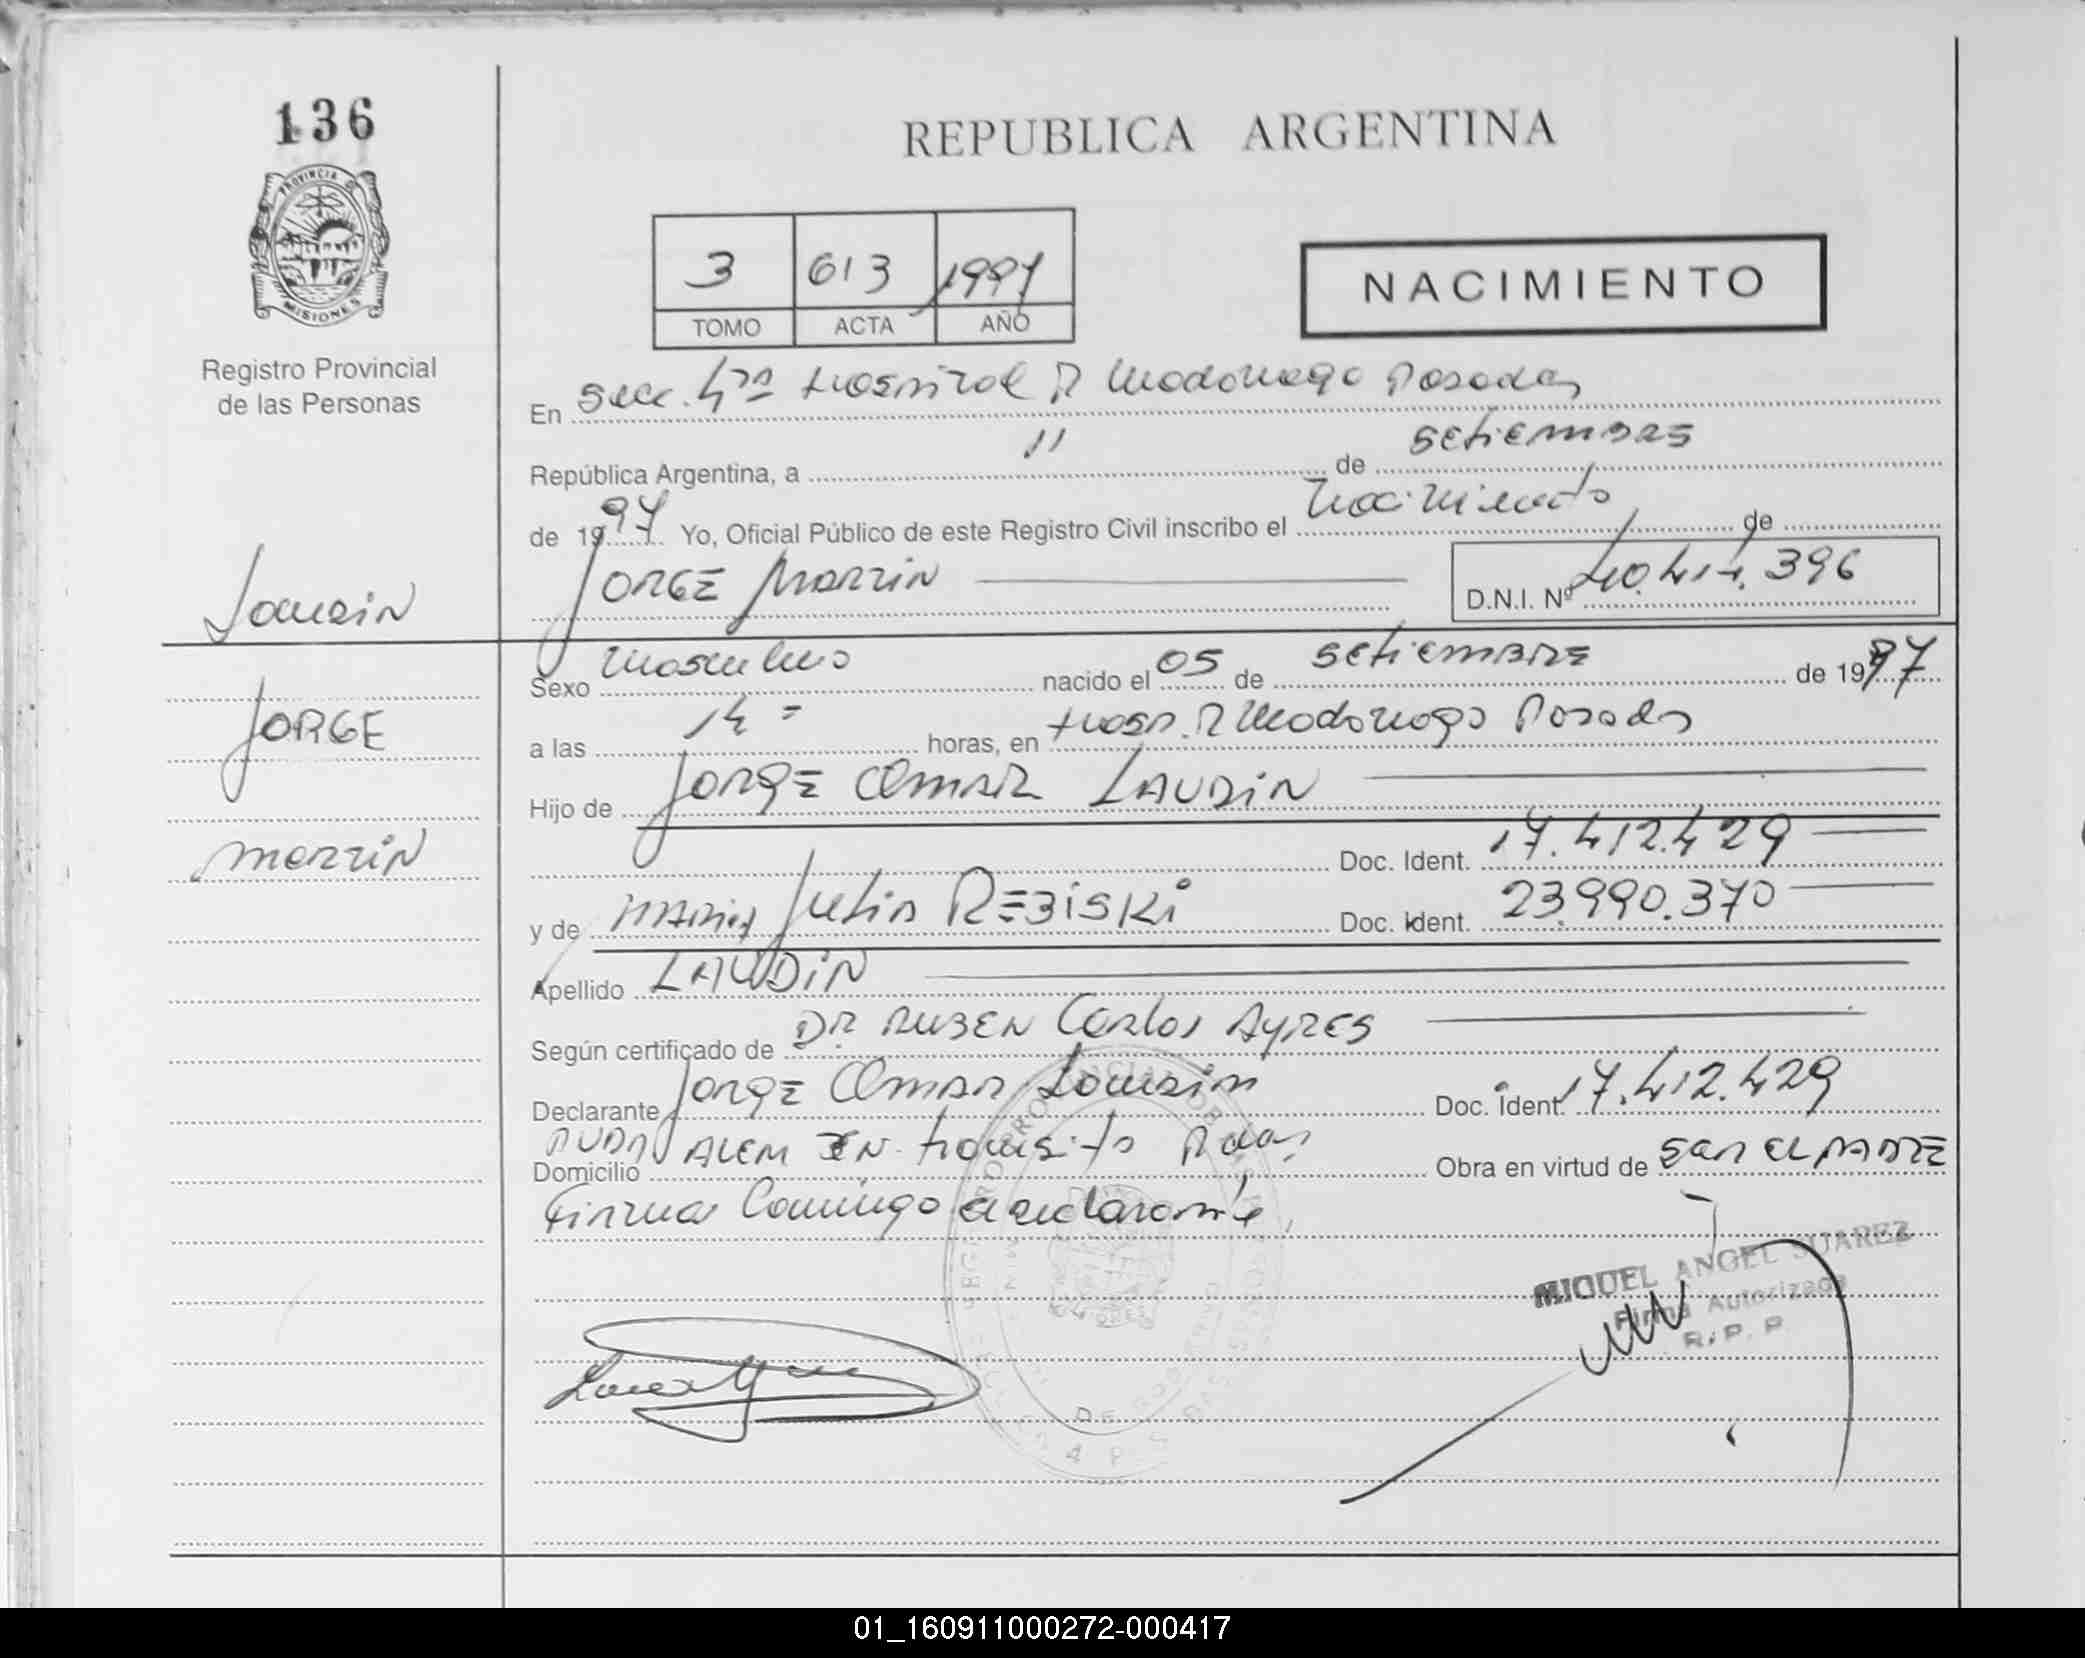 136
PROVINCIA DE
MISIONES
Registro Provincial
de las Personas
REPUBLICA ARGENTINA
3 613 1997
TOMO ACTA AÑO
NACIMIENTO
En Secc. 4ta Hospital R Madariaga Posadas
República Argentina, a 11 de setiembre
de 1997 Yo, Oficial Público de este Registro Civil inscribo el Nacimiento de
JORGE MARTIN
D.N.I. Nº 40.414.396
Laudin
JORGE
MARTIN
Sexo Masculino nacido el 05 de setiembre de 1997
a las 14 = horas, en Hosp. R Madariaga Posadas
Hijo de JORGE OMAR LAUDIN
Doc. Ident. 17.412.429
y de MARIA Julia REBISKI Doc. Ident. 23.990.370
Apellido LAUDIN
Según certificado de DR RUBEN Carlos AYRES
Declarante JORGE OMAR Laudin Doc. Ident. 17.412.429
Domicilio AVDA ALEM EN transito Pdas Obra en virtud de ser EL PADRE
Firma Conmigo el declarante,
MIGUEL ANGEL SUAREZ
Firma Autorizada
R. P. P
01_160911000272-000417